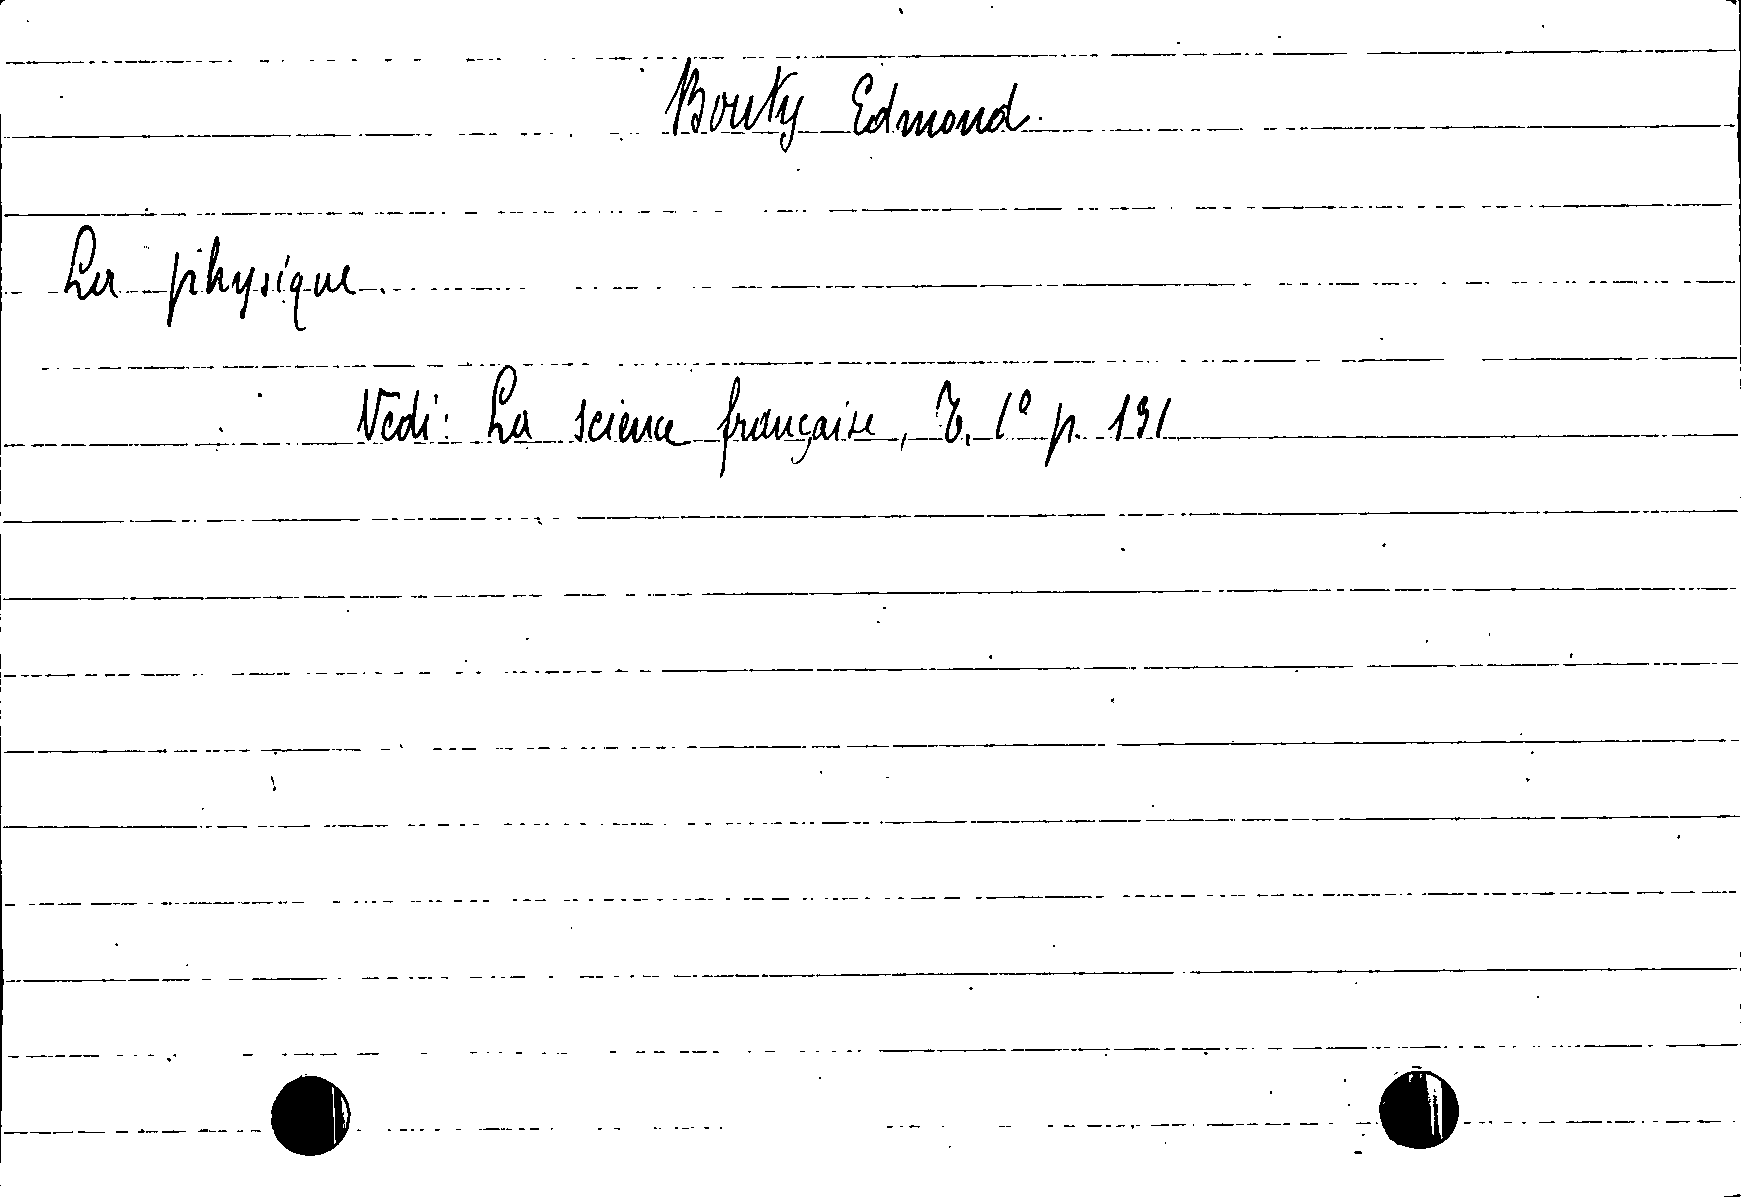 Bouty Edmond.
La physique.
Vedi: La science française, T. 1º p. 131